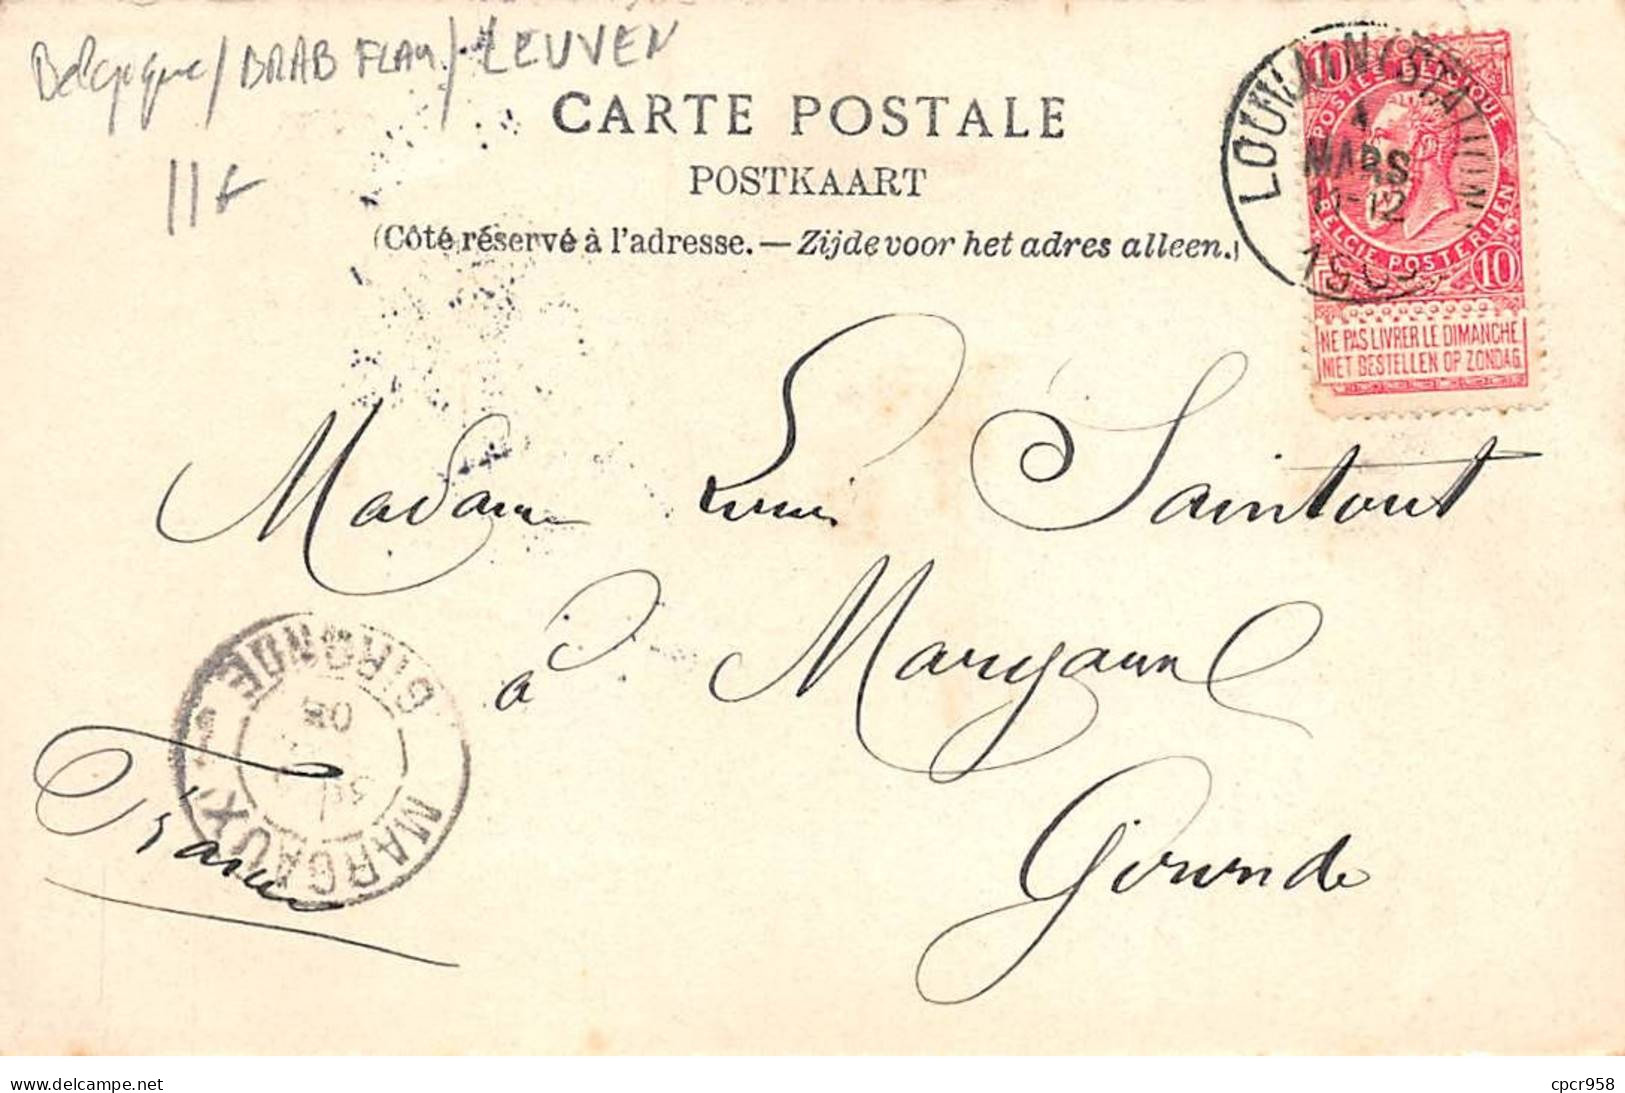 Belgique / BRAB FLAM / LEUVEN
11€
CARTE POSTALE
POSTKAART
(Côté réservé à l'adresse. — Zijde voor het adres alleen.)
LOUVAIN (STATION)
1
MARS
11-12
10 10
POSTES BELGIQUE
BELGIE POSTERIJEN 10
NE PAS LIVRER LE DIMANCHE
NIET BESTELLEN OP ZONDAG
Madame Louis Saintout
à Margaux
Gironde
France
MARGAUX
GIRONDE
delcampe.net
cpcr958